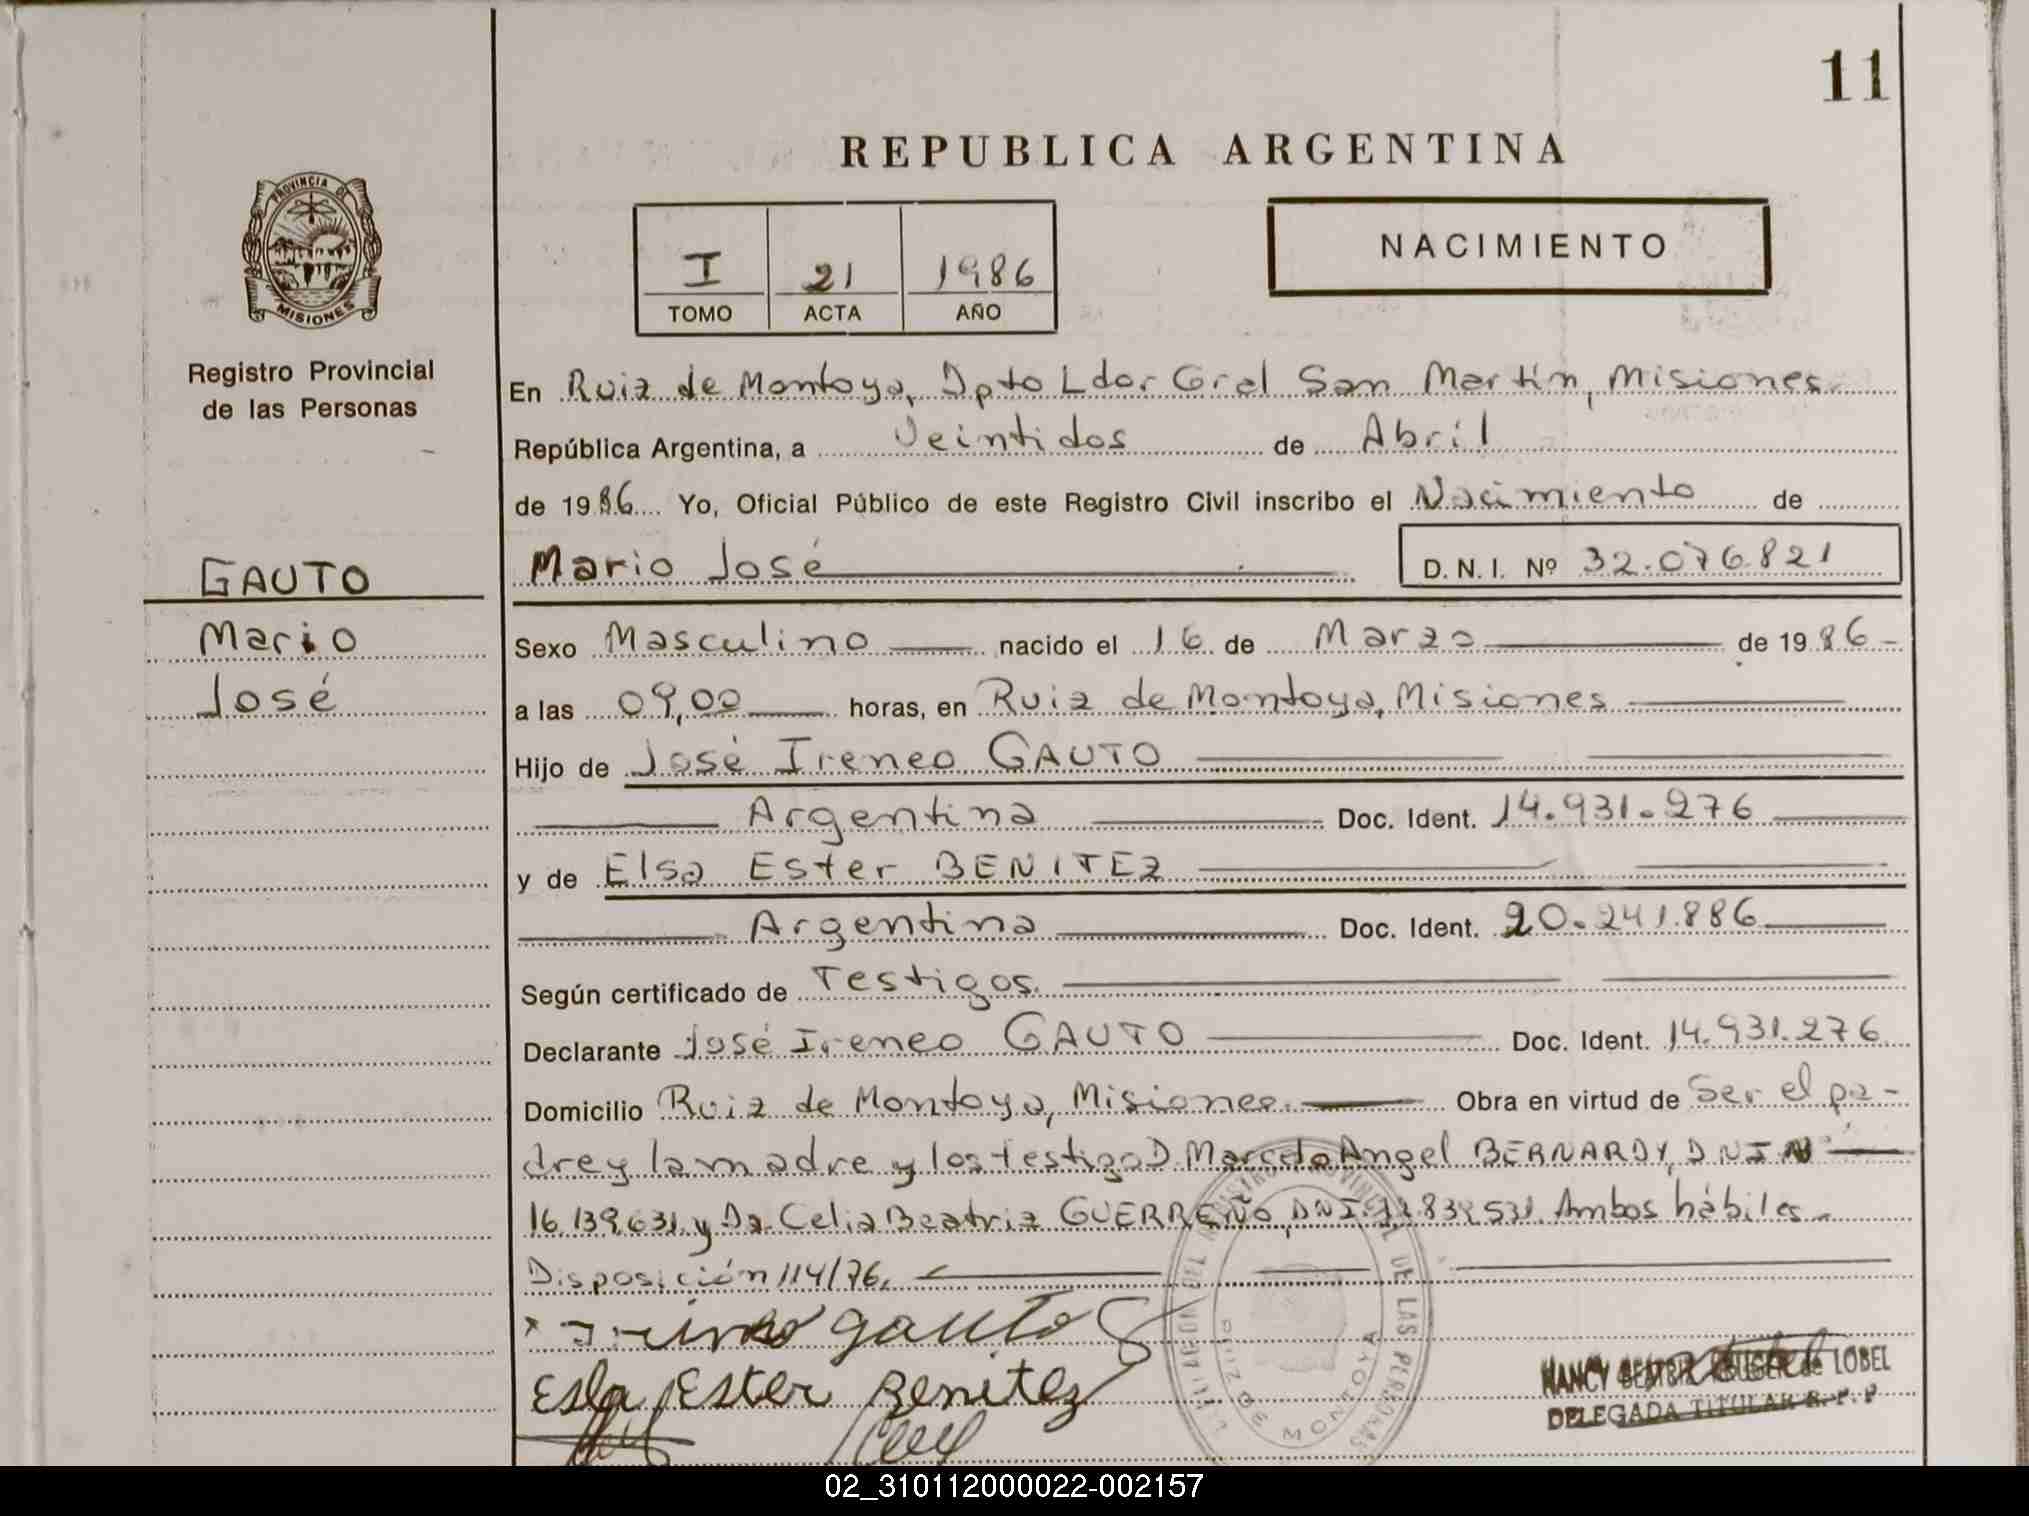 11
REPUBLICA ARGENTINA
PROVINCIA DE
MISIONES
Registro Provincial
de las Personas
I 21 1986
TOMO ACTA AÑO
NACIMIENTO
En Ruiz de Montoya, Dpto Ldor Gral San Martín, Misiones.
República Argentina, a Veintidos de Abril
de 1986 Yo, Oficial Público de este Registro Civil inscribo el Nacimiento de
GAUTO
Mario José D.N.I. Nº 32.076.821
Mario
Sexo Masculino nacido el 16 de Marzo de 1986
José
a las 09,00 horas, en Ruiz de Montoya, Misiones
Hijo de José Ireneo GAUTO
Argentina Doc. Ident. 14.931.276
y de Elsa Ester BENITEZ
Argentina Doc. Ident. 20.241.886
Según certificado de Testigos.
Declarante José Ireneo GAUTO Doc. Ident. 14.931.276
Domicilio Ruiz de Montoya, Misiones. Obra en virtud de Ser el pa-
dre y la madre y los testigo D. Marcelo Angel BERNARDY, DNI Nº
16.139.631 y Da. Celia Beatriz GUERREÑO, DNI 839.531. Ambos hábiles
Disposición 114/76.
gauto
Esla Ester Benitez
REGISTRO PROVINCIAL DE LAS PERSONAS
RUIZ DE MONTOYA
NANCY BEATRIZ de LOBEL
DELEGADA TITULAR R.P.P
02_310112000022-002157